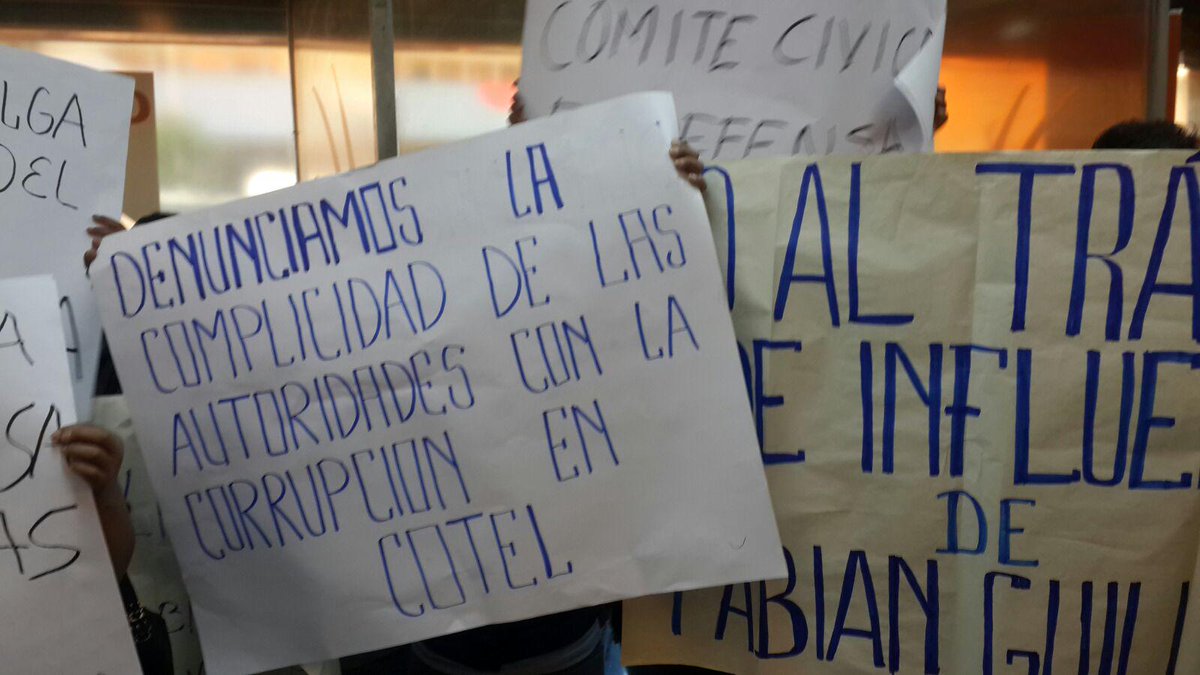 COMITE CIVIC
DEFENSA
LGA
DEL
DENUNCIAMOS LA
COMPLICIDAD DE LAS
AUTORIDADES CON LA
CORRUPCION EN
COTEL
O AL TRÁ
DE INFLUE
DE
FABIAN GUILL
A
SA
AS